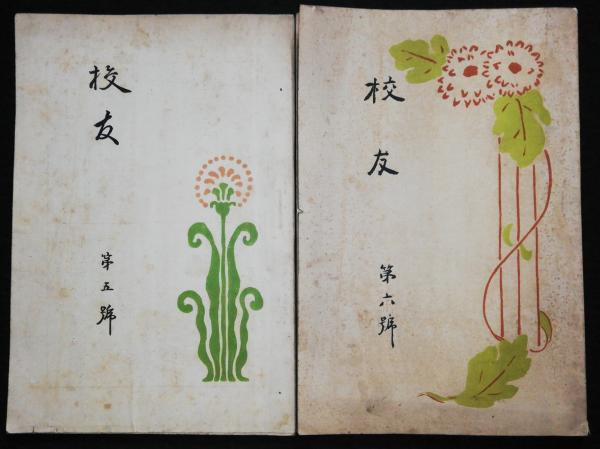 校友
第五號
校友
第六號